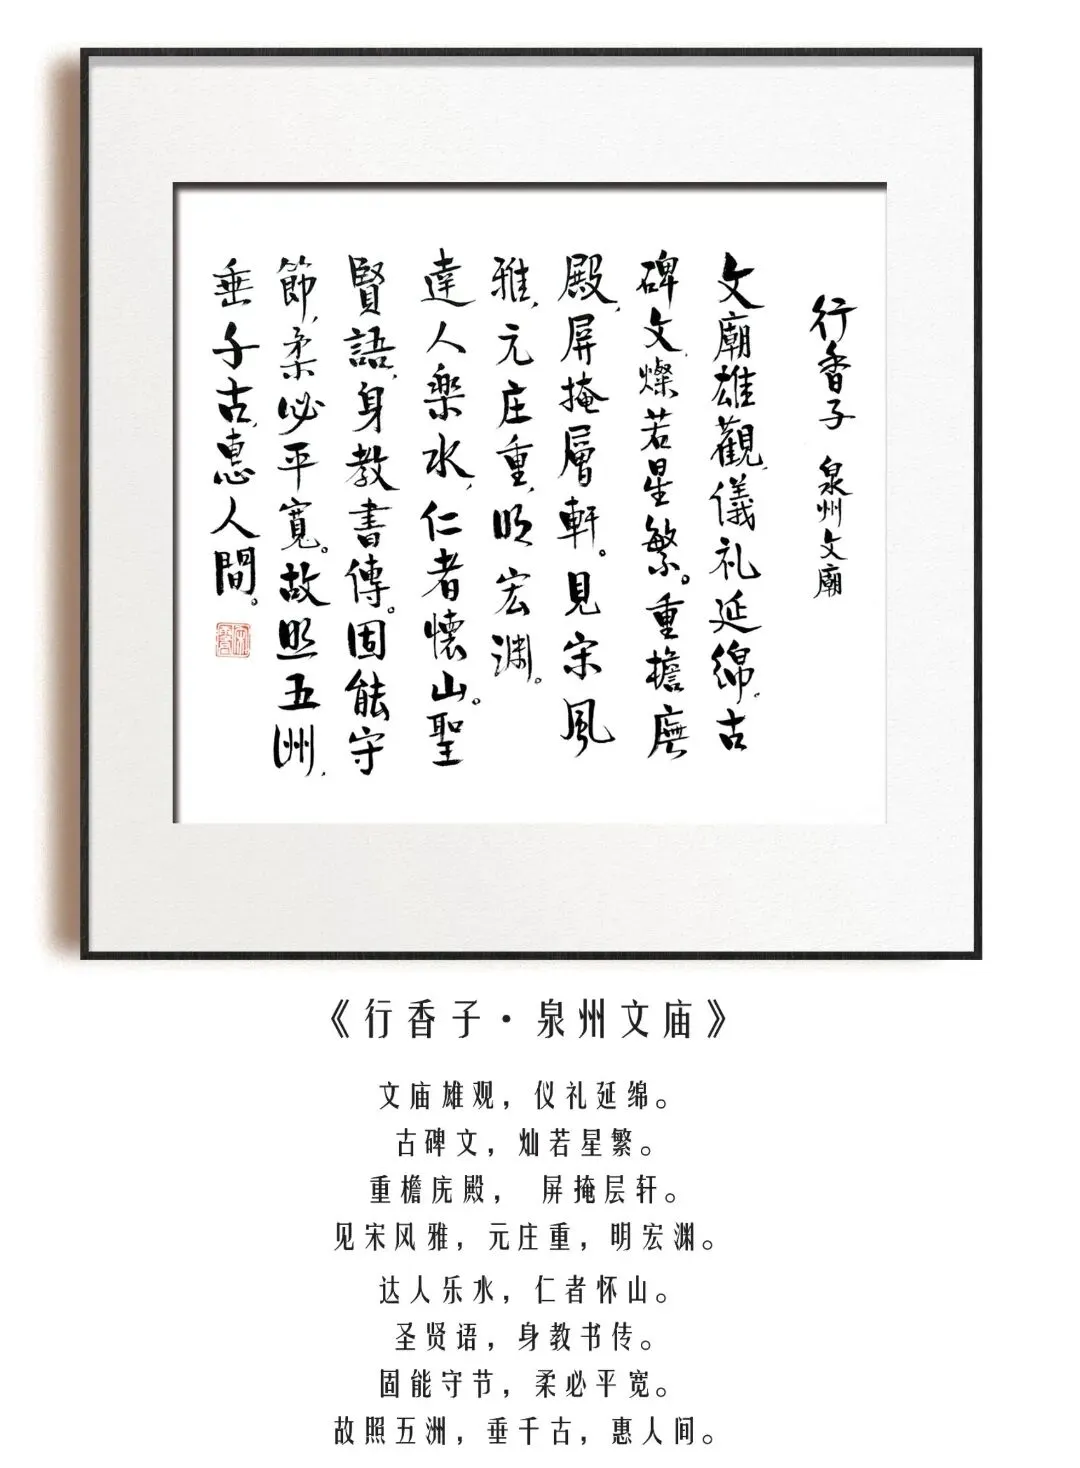 行香子 泉州文廟
文廟雄觀,儀礼延綿。古
碑文,燦若星繁。重擔廡
殿,屏掩層軒。見宋風
雅,元庄重,明宏渊。
達人樂水,仁者懷山。聖
賢語,身教書傳。固能守
節,柔必平寬。故照五洲,
垂千古,惠人間。
《行香子·泉州文庙》
文庙雄观，仪礼延绵。
古碑文，灿若星繁。
重檐庑殿， 屏掩层轩。
见宋风雅，元庄重，明宏渊。
达人乐水，仁者怀山。
圣贤语，身教书传。
固能守节，柔必平宽。
故照五洲，垂千古，惠人间。